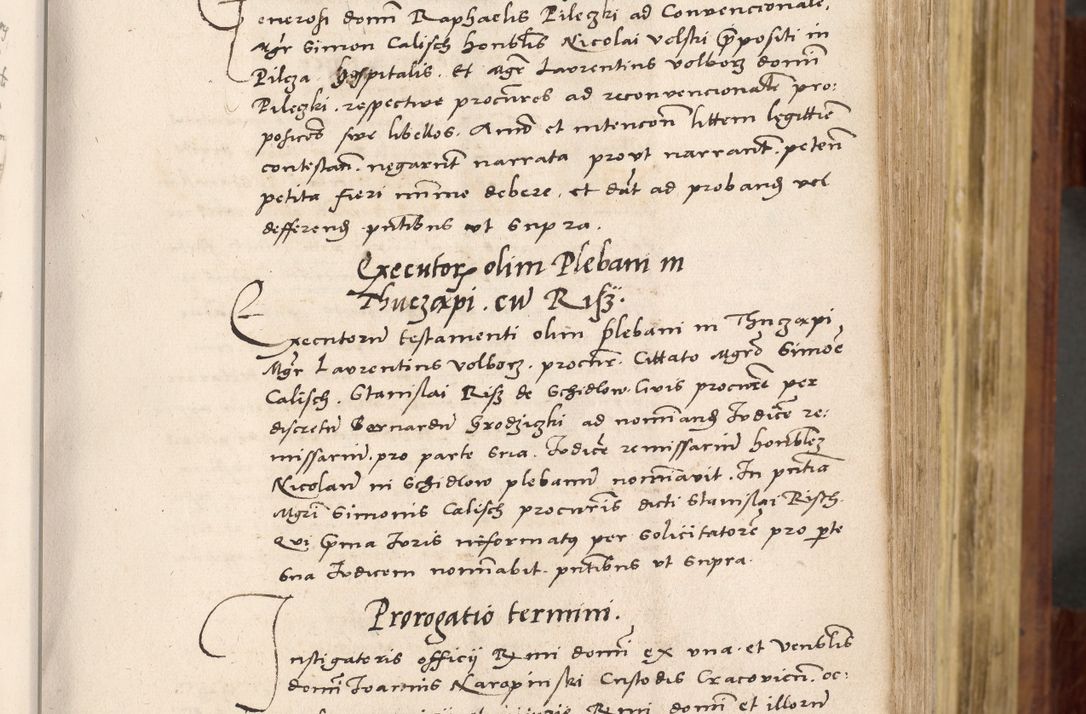 Generosi domī Raphaelis Pileczki ad Convencionale,
Mgr Simon Calisch honblis Nicolai Volski p̄positi in
Pilcza hospitalis. Et Mgr Laurentius Volborz domī
Pileczki. respective procūres ad reconvencionale pro:
posicōes sive libellos. Animō et intencōn littem legittīe
contestań. negarūt narrata prout narrant. petēn
petita fieri mīme debere. et dāt ad proband vel
defferend pn̄tibus ut supra.
Executor olim Plebani in
Thuczapi. cū Risz.
Executorū testamenti olim plebani in Thuczapi
Mgr Laurentius Volborz. procur̄. Cittato Mgrō Simōe
Calisch. Stanislai Risz de Schidlow Civis procurē per
discretū Bernardū Grodziczki ad nomīand Judicē re:
missariū. pro parte sua. Judicē remissariū honblez
Nicolaū in Schidlow plebanū nomīavit. In pn̄tia
Mgri Simonis Calisch procurīs dicti Stanislai Risch.
Qui p̄ma Juris informatus per solicitatorē pro pte
sua Judicem nomīabit. pn̄tibus ut supra.
Prorogatio termini.
Instigatoris officij Rmi domī ex una. et venblis
domī Joannis Karapinski Custodis Cracovien̄. oc:
Rmi domī et illorū